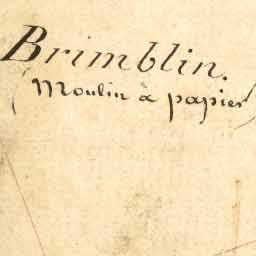 Brimblin.
(Moulin à papier)